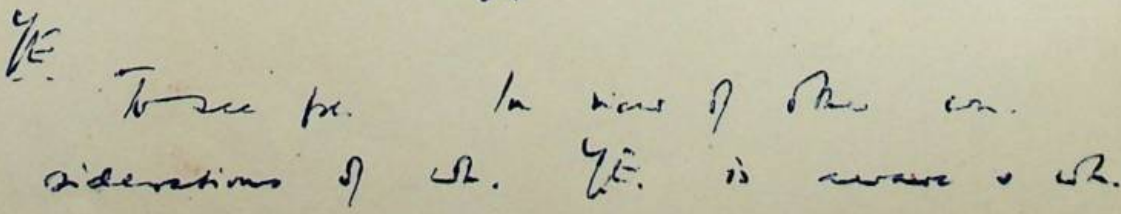 Y.E.
To see pse. In view of other con-
siderations of wh. Y.E. is aware & wh.